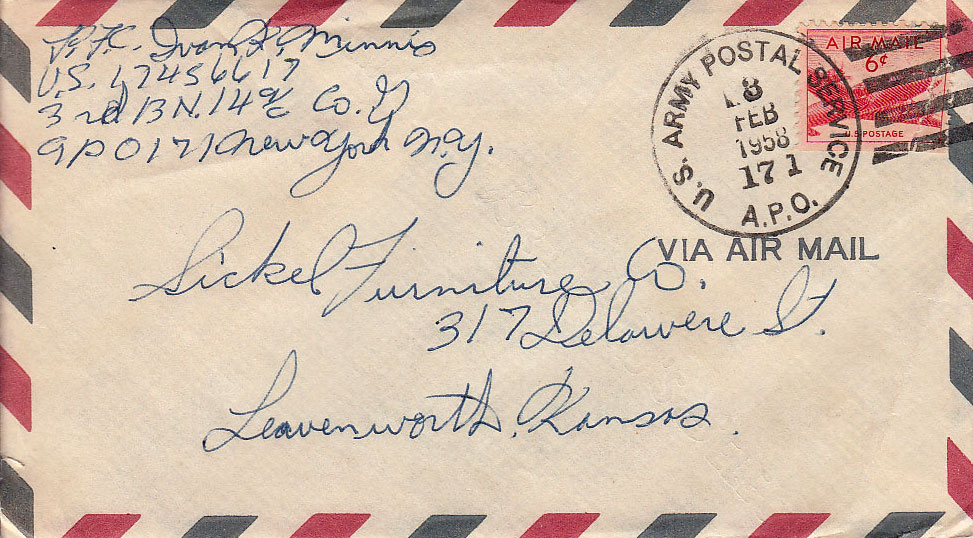 P.F.C. Ivan L. Minnis
U.S. 67456617
3rd BN. 14 Co.
APO 171 New York N.Y.
U.S. ARMY POSTAL SERVICE
FEB
1958
171
A.P.O.
AIR MAIL
6¢
U.S. POSTAGE
VIA AIR MAIL
Sickel Furniture Co.
317 Delawere St.
Leavenworth, Kansas.